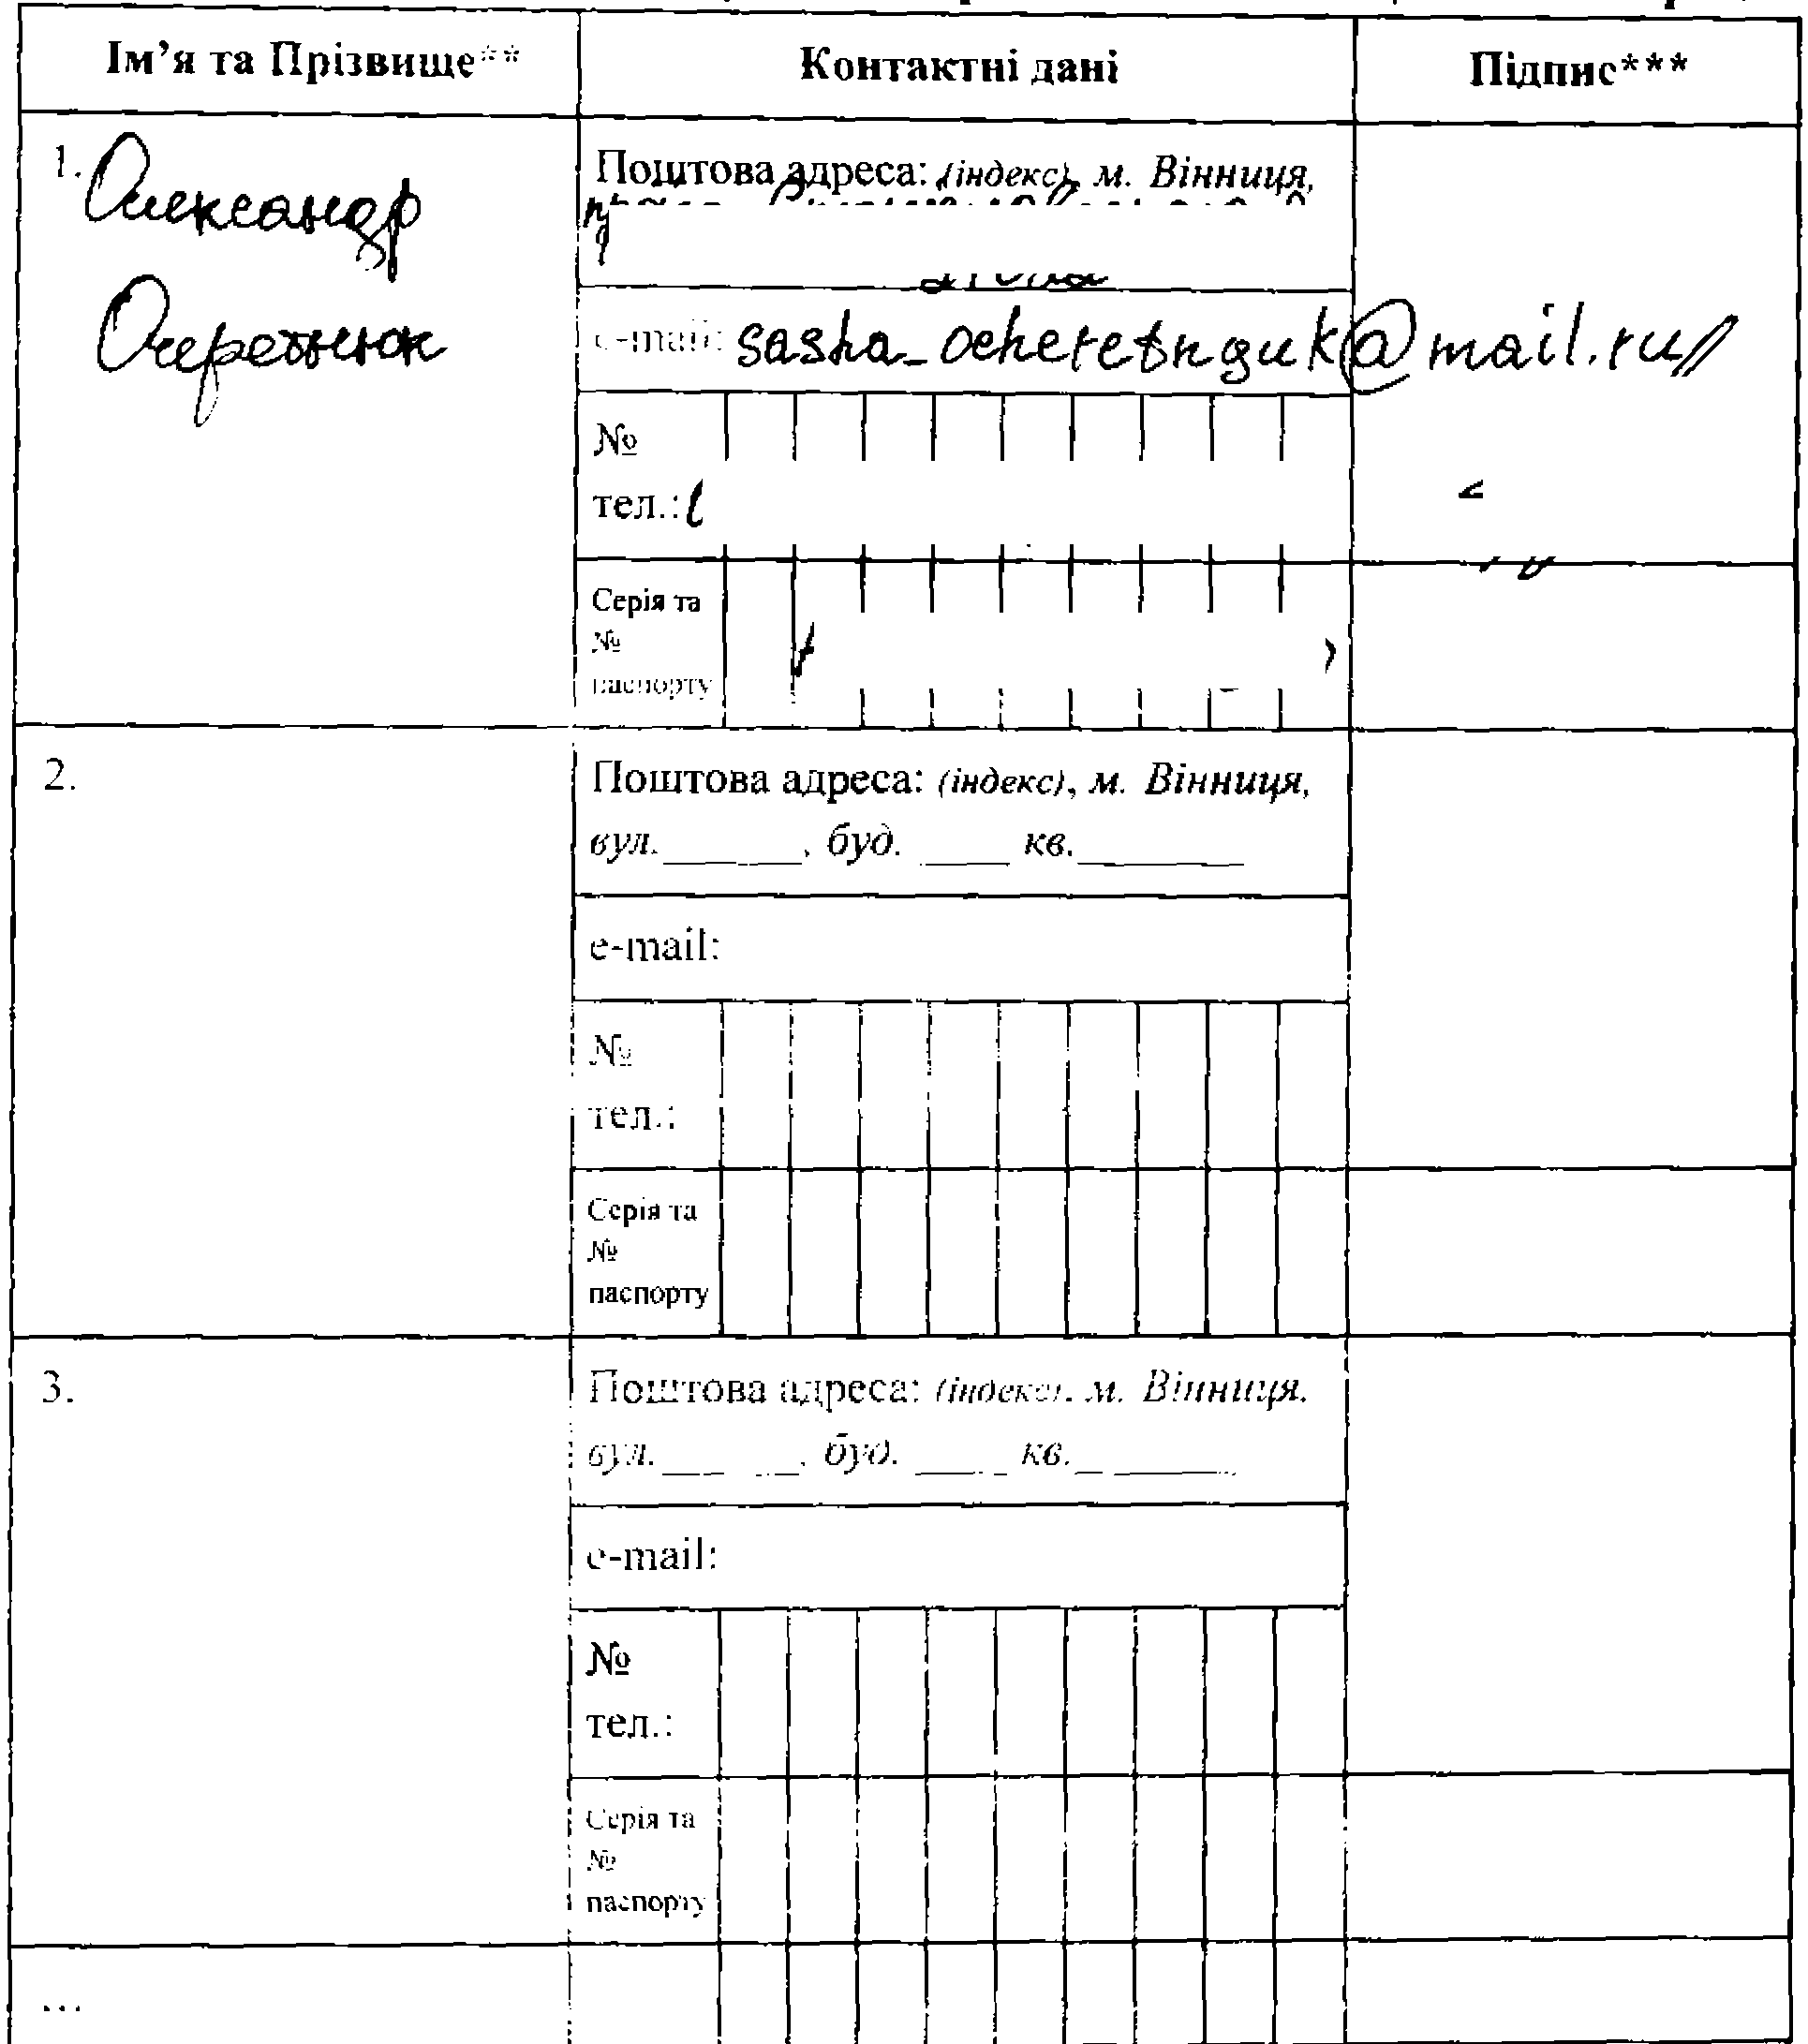 Ім’я та Прізвище** Контактні дані Підпис***
1. Олександр
Очеретнюк
Поштова адреса: (індекс), м. Вінниця,
e-mail:
№
тел.:
Серія та
№
паспорту
2.
Поштова адреса: (індекс), м. Вінниця,
вул. ______, буд. ____ кв. _______
e-mail:
№
тел.:
Серія та
№
паспорту
3.
Поштова адреса: (індекс), м. Вінниця,
вул. ______, буд. ____ кв. _______
e-mail:
№
тел.:
Серія та
№
паспорту
...